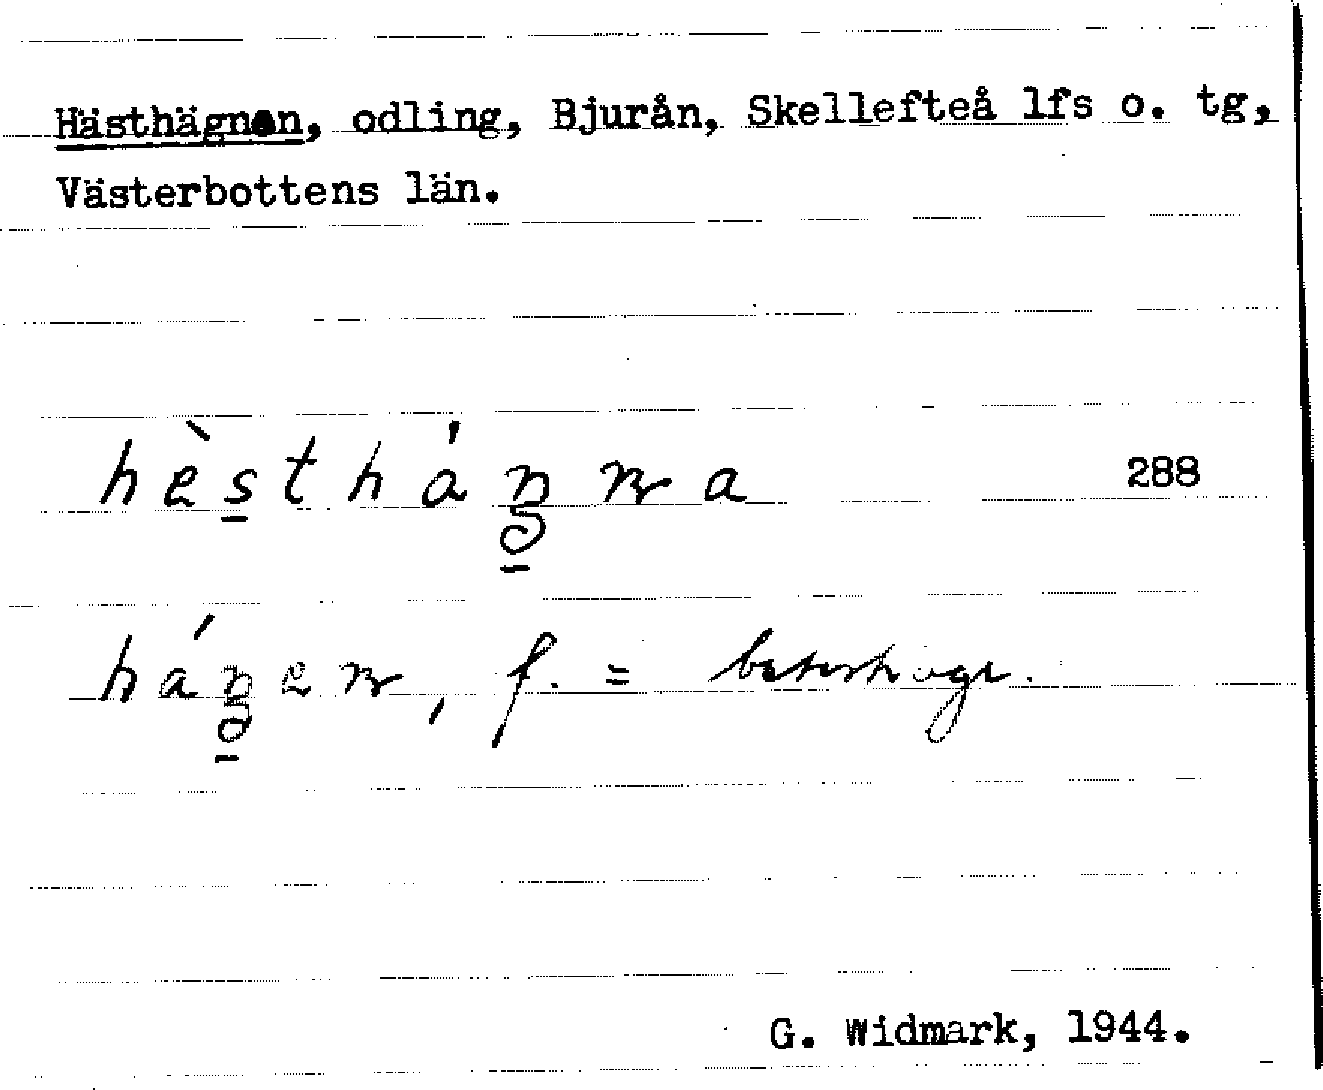 Hästhägnan, odling, Bjurån, Skellefteå lfs o. tg,
Västerbottens län.
hèstháŋna 288
háŋen, f. = beteshage.
G. Widmark, 1944.